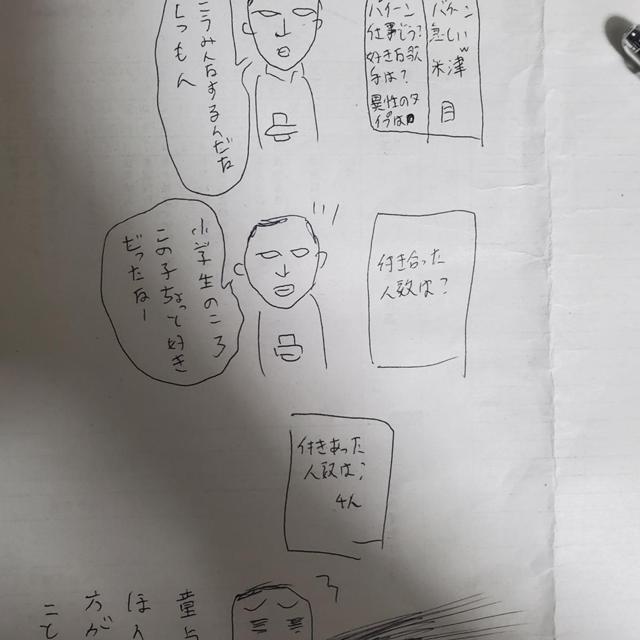 バケーン
悲しいw
米津
目
バイーン
仕事どう?
好きな歌
手は?
異性のタ
イプは
こうみんなするんだな
しつもん
付き合った
人数は?
小学生のころ
この子ちょっと好き
だったなー
付きあった
人数は?
4人
童貞
ほん
方が
こと